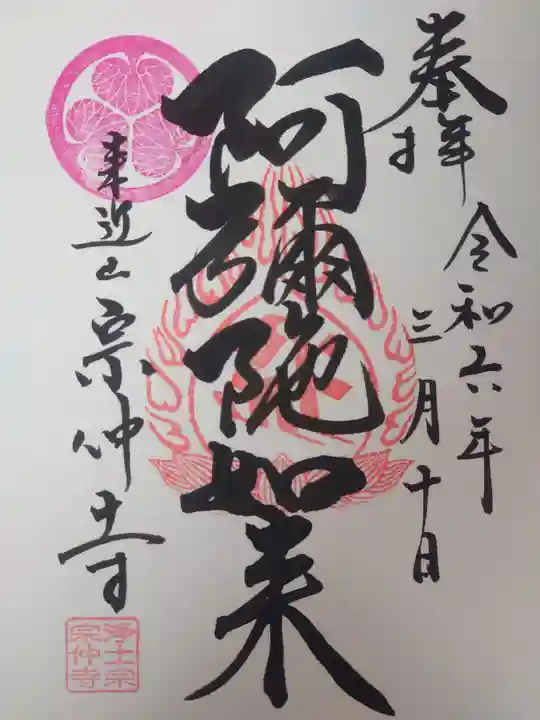 奉拝
令和六年
三月十日
阿彌陀如来
来迎山宗仲寺
浄土宗
宗仲寺